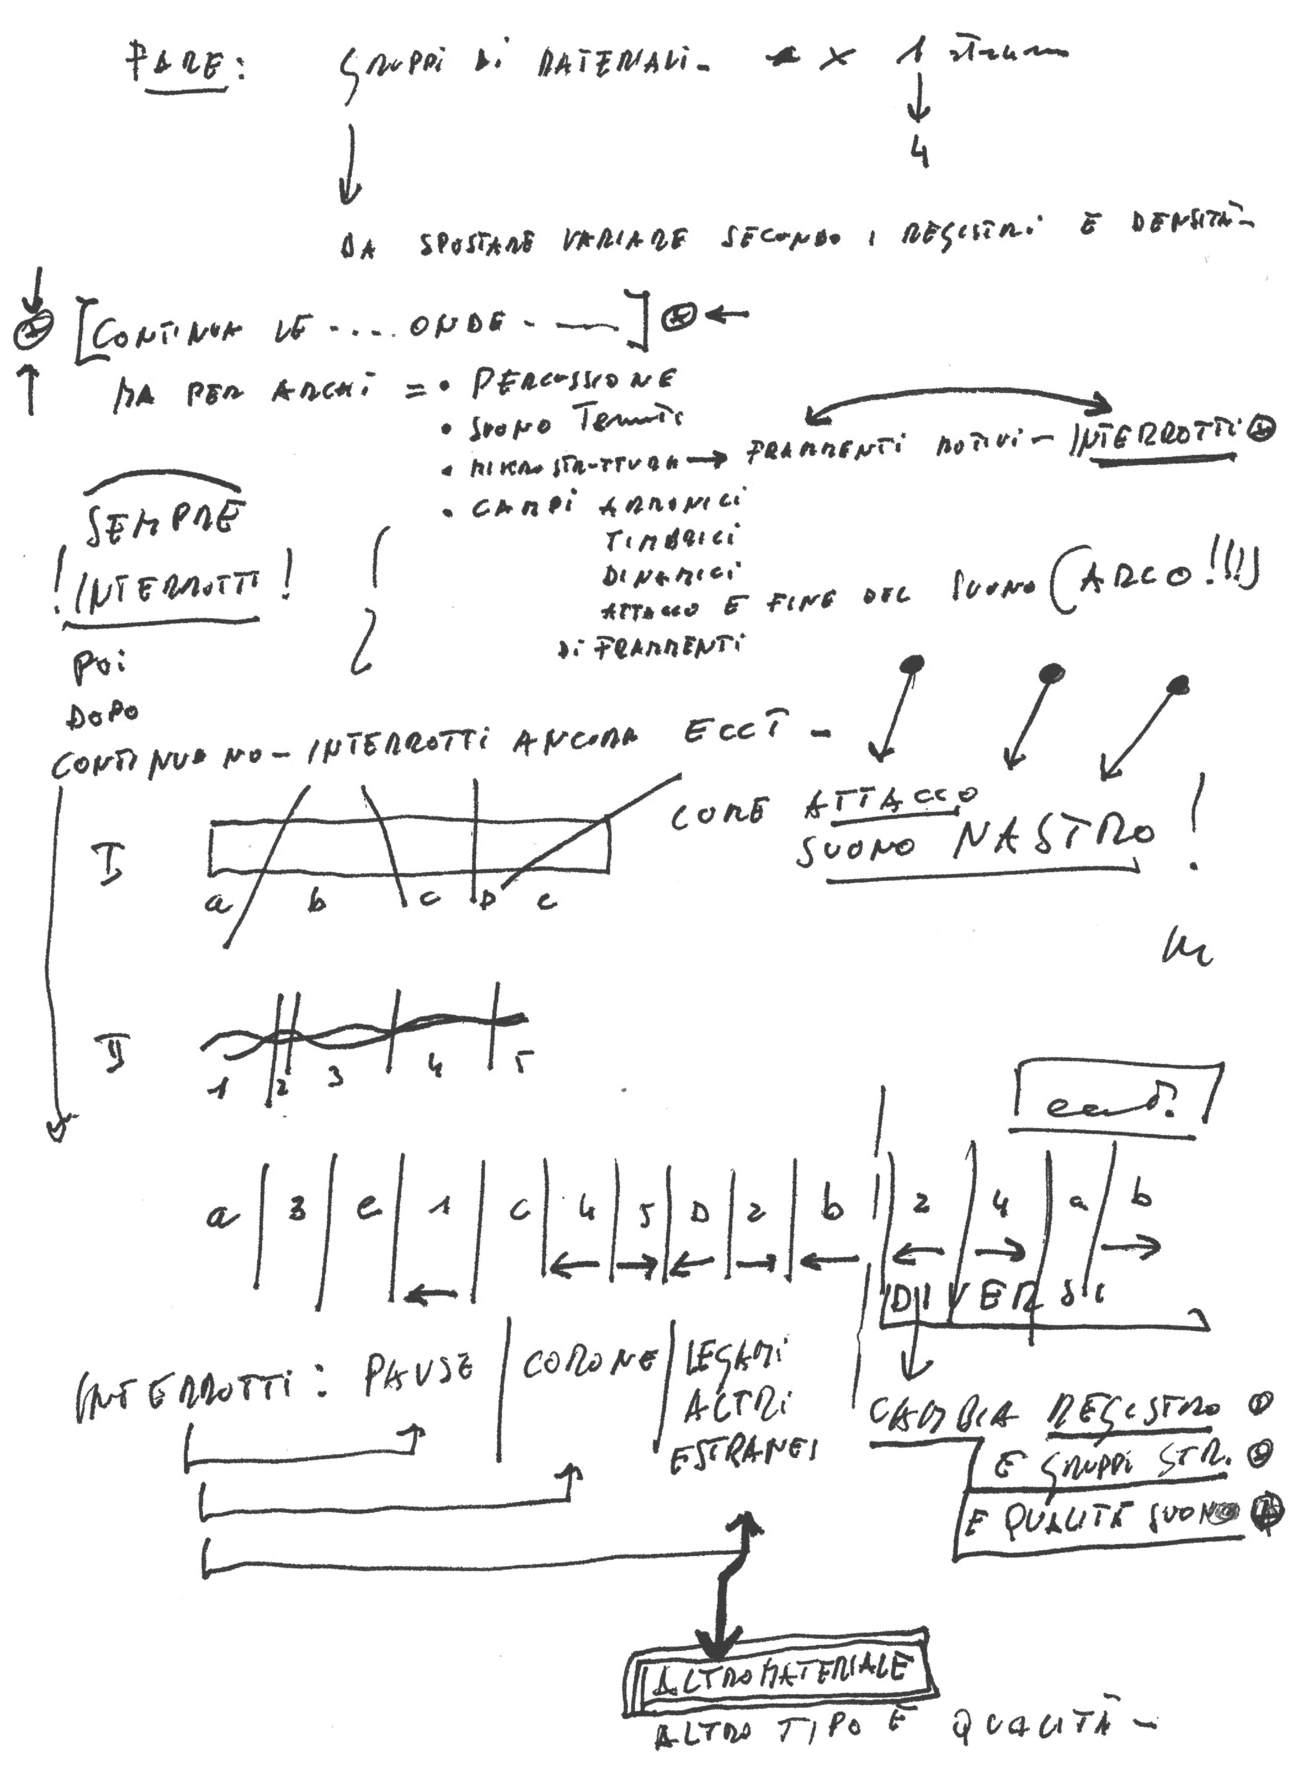 FARE: GRUPPI DI MATERIALI - x 1 strum
4
DA SPOSTARE VARIARE SECONDO I REGISTRI E DENSITÀ -
[CONTINUA LE .... ONDE - —]
MA PER ARCHI = • PERCUSSIONE
• SUONO Tenuti
• MIKROSTRUTTURA → FRAMMENTI MOTIVI - INTERROTTI
• CAMPI ARMONICI
TIMBRICI
DINAMICI
ATTACCO E FINE DEL SUONO (ARCO!!!!)
DI FRAMMENTI
SEMPRE
! INTERROTTI !
POI
DOPO
CONTINUANO - INTERROTTI ANCORA ECCT -
COME ATTACCO
SUONO NASTRO !
I
a b c D e
II
1 2 3 4 5
a | 3 | e | 1 | c | 4 | 5 | D | 2 | b | 2 | 4 | a | b
DIVERSI
INTERROTTI: PAUSE | CORONE | LEGAMI
ALTRI
ESTRANEI
CAMBIA REGISTRO
E GRUPPI STR.
E QUALITÀ SUONO
ALTRO MATERIALE
ALTRO TIPO E QUALITÀ -